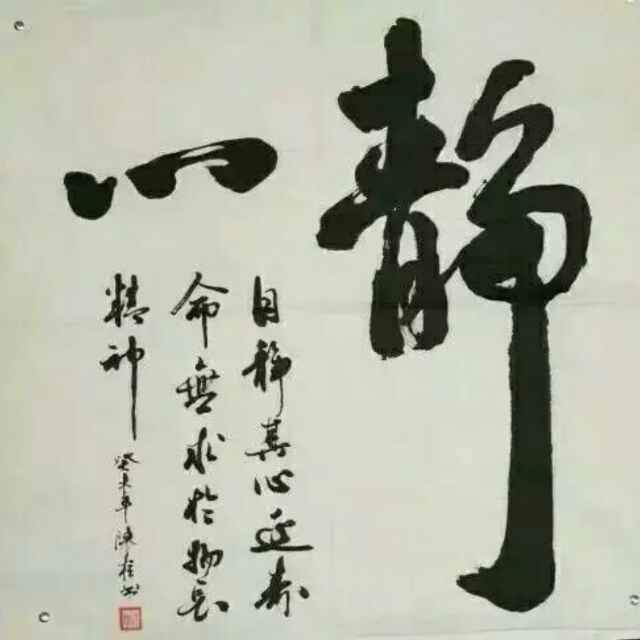 静心
自静其心延寿
命無求於物長
精神
癸未年陳